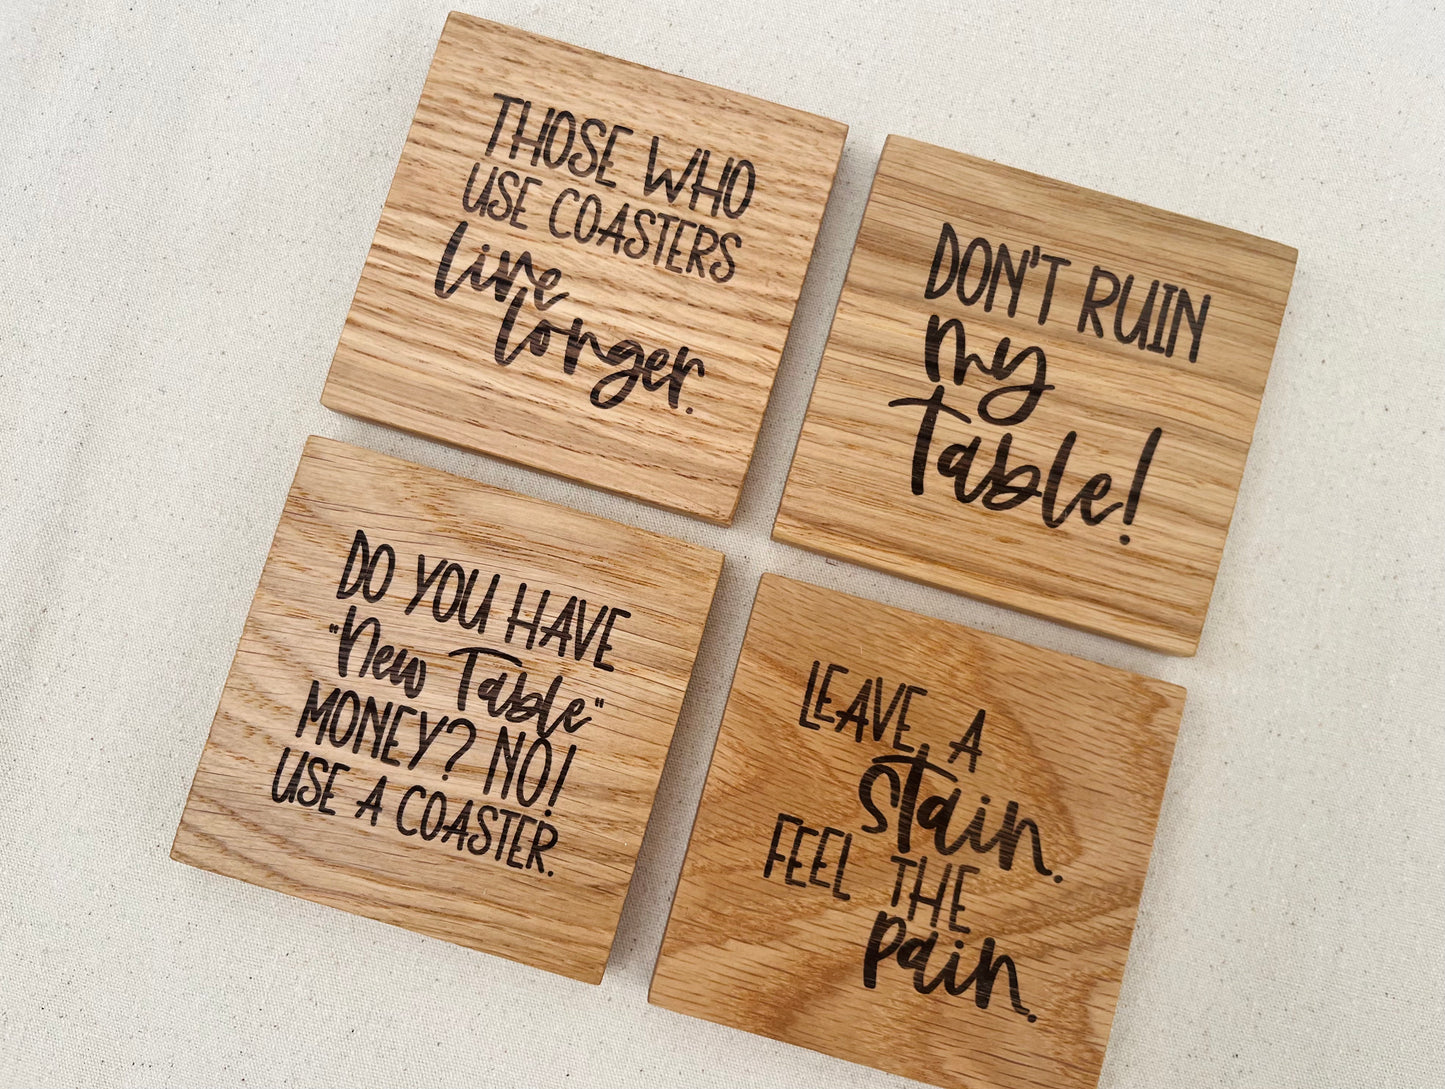 THOSE WHO
USE COASTERS
live
longer.
DON'T RUIN
my
table!
DO YOU HAVE
"New Table"
MONEY? NO!
USE A COASTER.
LEAVE A
stain.
FEEL THE
pain.